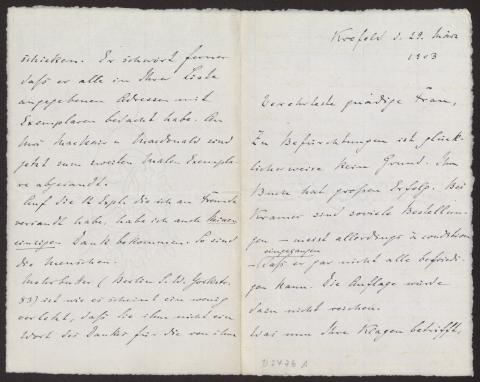 Krefeld d. 29. März
1903
Verehrteste gnädige Frau,
Zu Befürchtungen ist glück-
licherweise kein Grund. Ihr
Buch hat großen Erfolg. Bei
Kramer sind soviele Bestellun-
gen – meist allerdings à condition
eingegangen
– daß er gar nicht alle befriedi-
gen kann. Die Auflage würde
dazu nicht reichen.
Was nun Ihre Klagen betrifft,
schicken. Er schwört ferner
daß er alle in Ihrer Liste
angegebenen Adressen mit
Exemplaren bedacht habe. An
Mrs Macnair u Macdonald sind
jetzt zum zweiten Malen Exempla-
re abgesandt.
Auf die 12 Expl. die ich an Freunde
versandt habe, habe ich auch keinen
einzigen Dank bekommen. So sind
die Menschen.
Mohrbutter (Berlin S.W. Yorkstr.
83) ist wie es scheint ein wenig
verletzt, daß Sie ihm nicht ein
Wort des Dankes für die von ihm
D2476 A